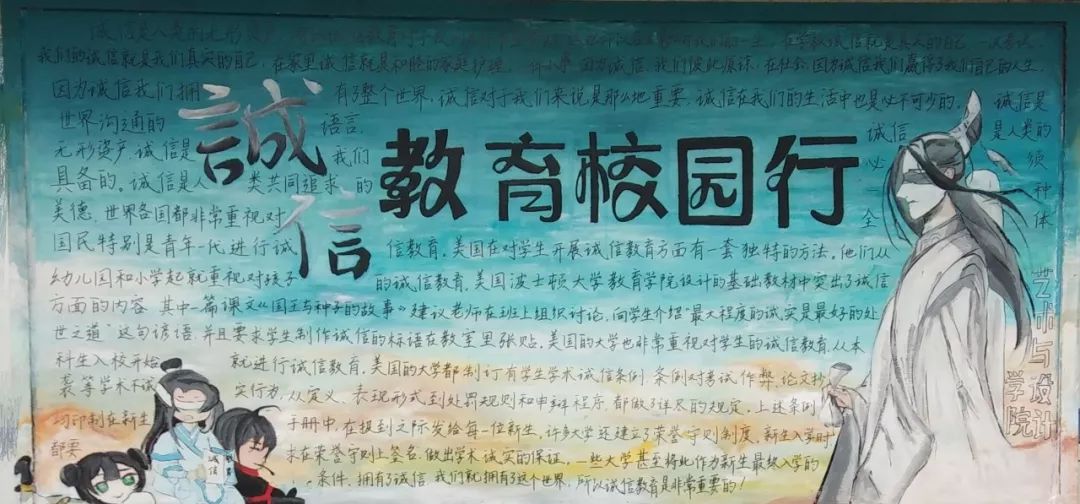 诚信是人类的无形资产
我们的诚信就是我们真实的自己，在家里诚信就是和睦的家庭护理。 因为诚信，我们彼此原谅，在社会，因为诚信我们赢得了我们自己的人生。
因为诚信我们拥有了整个世界，诚信对于我们来说是那么地重要。诚信在我们的生活中也是必不可少的。诚信是
世界沟通的语言，诚信是人类的
无形资产，诚信是我们必须
具备的。诚信是人类共同追求的一种
美德。世界各国都非常重视对全体
誠信
教育校园行
国民特别是青年一代进行诚信教育。美国在对学生开展诚信教育方面有一套独特的方法。他们从
幼儿园和小学起就重视对孩子的诚信教育。美国波士顿大学教育学院设计的基础教材中突出了诚信
方面的内容 其中一篇课文《国王与种子的故事》建议老师在班上组织讨论，向学生介绍"最大程度的诚实是最好的处
世之道"这句谚语，并且要求学生制作诚信的标语在教室里张贴。美国的大学也非常重视对学生的诚信教育，从本
科生入校开始就进行诚信教育。美国的大学都制订有学生学术诚信条例，条例对考试作弊、论文抄
袭等学术不诚实行为，从定义、表现形式到处罚规则和申辩程序，都做了详尽的规定。上述条例
均印制在新生手册中，在报到之际发给每一位新生，许多大学还建立了荣誉守则制度，新生入学时
都要求在荣誉守则上签名，做出学术诚实的保证。一些大学甚至将此作为新生最终入学的
条件，拥有了诚信，我们就拥有了这个世界，所以诚信教育是非常重要的！
艺术与设计
学院
诚信